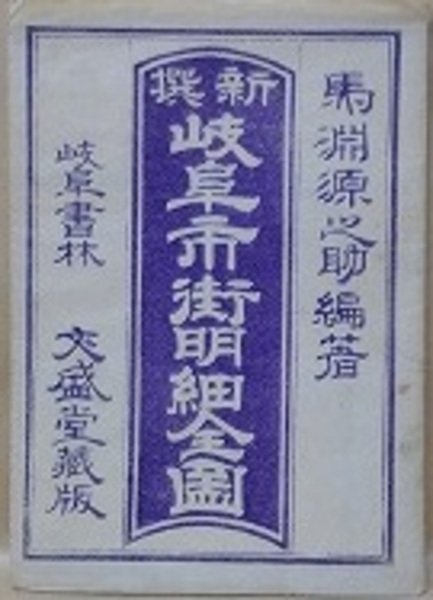 馬淵源之助編著
新撰
岐阜市街明細全圖
岐阜書林
文盛堂藏版